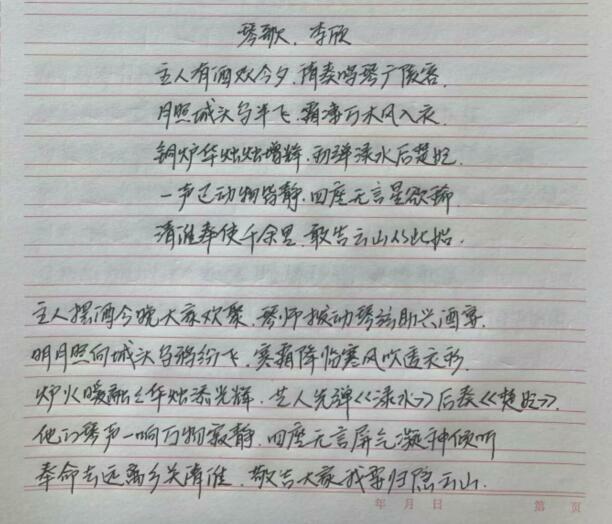 琴歌、李欣
主人有酒欢今夕,请奏鸣琴广陵客.
月照城头乌半飞,霜凄万木风入衣.
铜炉华烛烛增辉,初弹渌水后楚妃.
一声已动物皆静,四座无言星欲稀
清淮奉使千余里,敢告云山从此始.
主人摆酒今晚大家欢聚,琴师拨动琴弦助兴酒宴.
明月照向城头乌鸦纷飞,寒霜降临寒风吹透衣衫.
炉火暖融融华烛添光辉,艺人先弹《渌水》后奏《楚妃》.
他的琴声一响万物寂静,四座无言屏气凝神倾听
奉命去远离乡关清淮,敬告大家我要归隐云山.
年 月 日 第 页